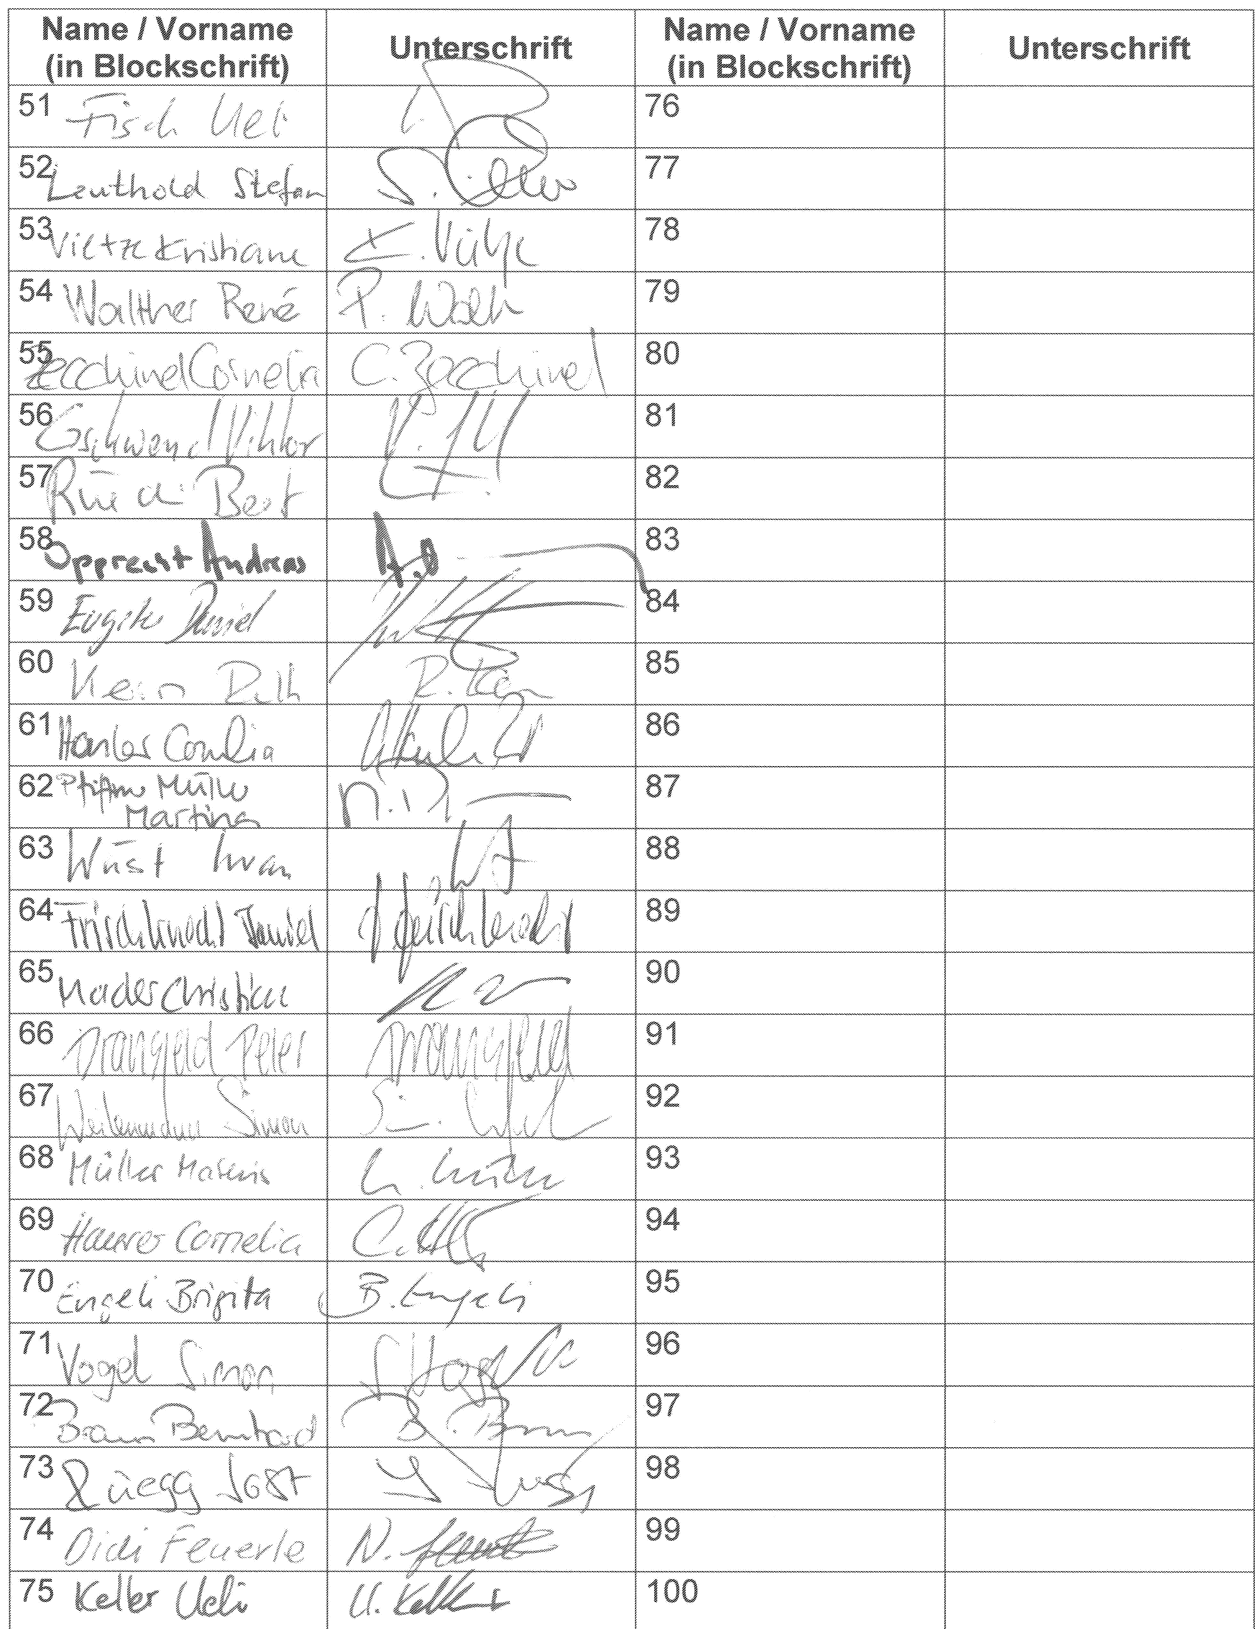 Name / Vorname
(in Blockschrift)
Unterschrift
Name / Vorname
(in Blockschrift)
Unterschrift
51 Fisch Ueli
76
52 Leuthold Stefan
77
53 Vietze Kristiane K. Vietze
78
54 Walther René
79
55 Zecchinel Cornelia C. Zecchinel
80
56 Gschwend Viktor
81
57 Rüedi Beat
82
58 Opprecht Andreas A.O
83
59 Eugster Daniel
84
60 Kern Ruth R. Kern
85
61 Hasler Cornelia
86
62 Pfiffner Müller
Martina
87
63 Wüst Iwan
88
64 Frischknecht Daniel D Frischknecht
89
65 Mader Christian
90
66 Dransfeld Peter Dransfeld
91
67 Weilenmann Simon
92
68 Müller Marcus
93
69 Hauser Cornelia
94
70 Engeli Brigitta B. Engeli
95
71 Vogel Simon S Vogel
96
72 Braun Bernhard B. Braun
97
73 Rüegg Jost J Rüegg
98
74 Didi Feuerle
99
75 Keller Ueli U. Keller
100